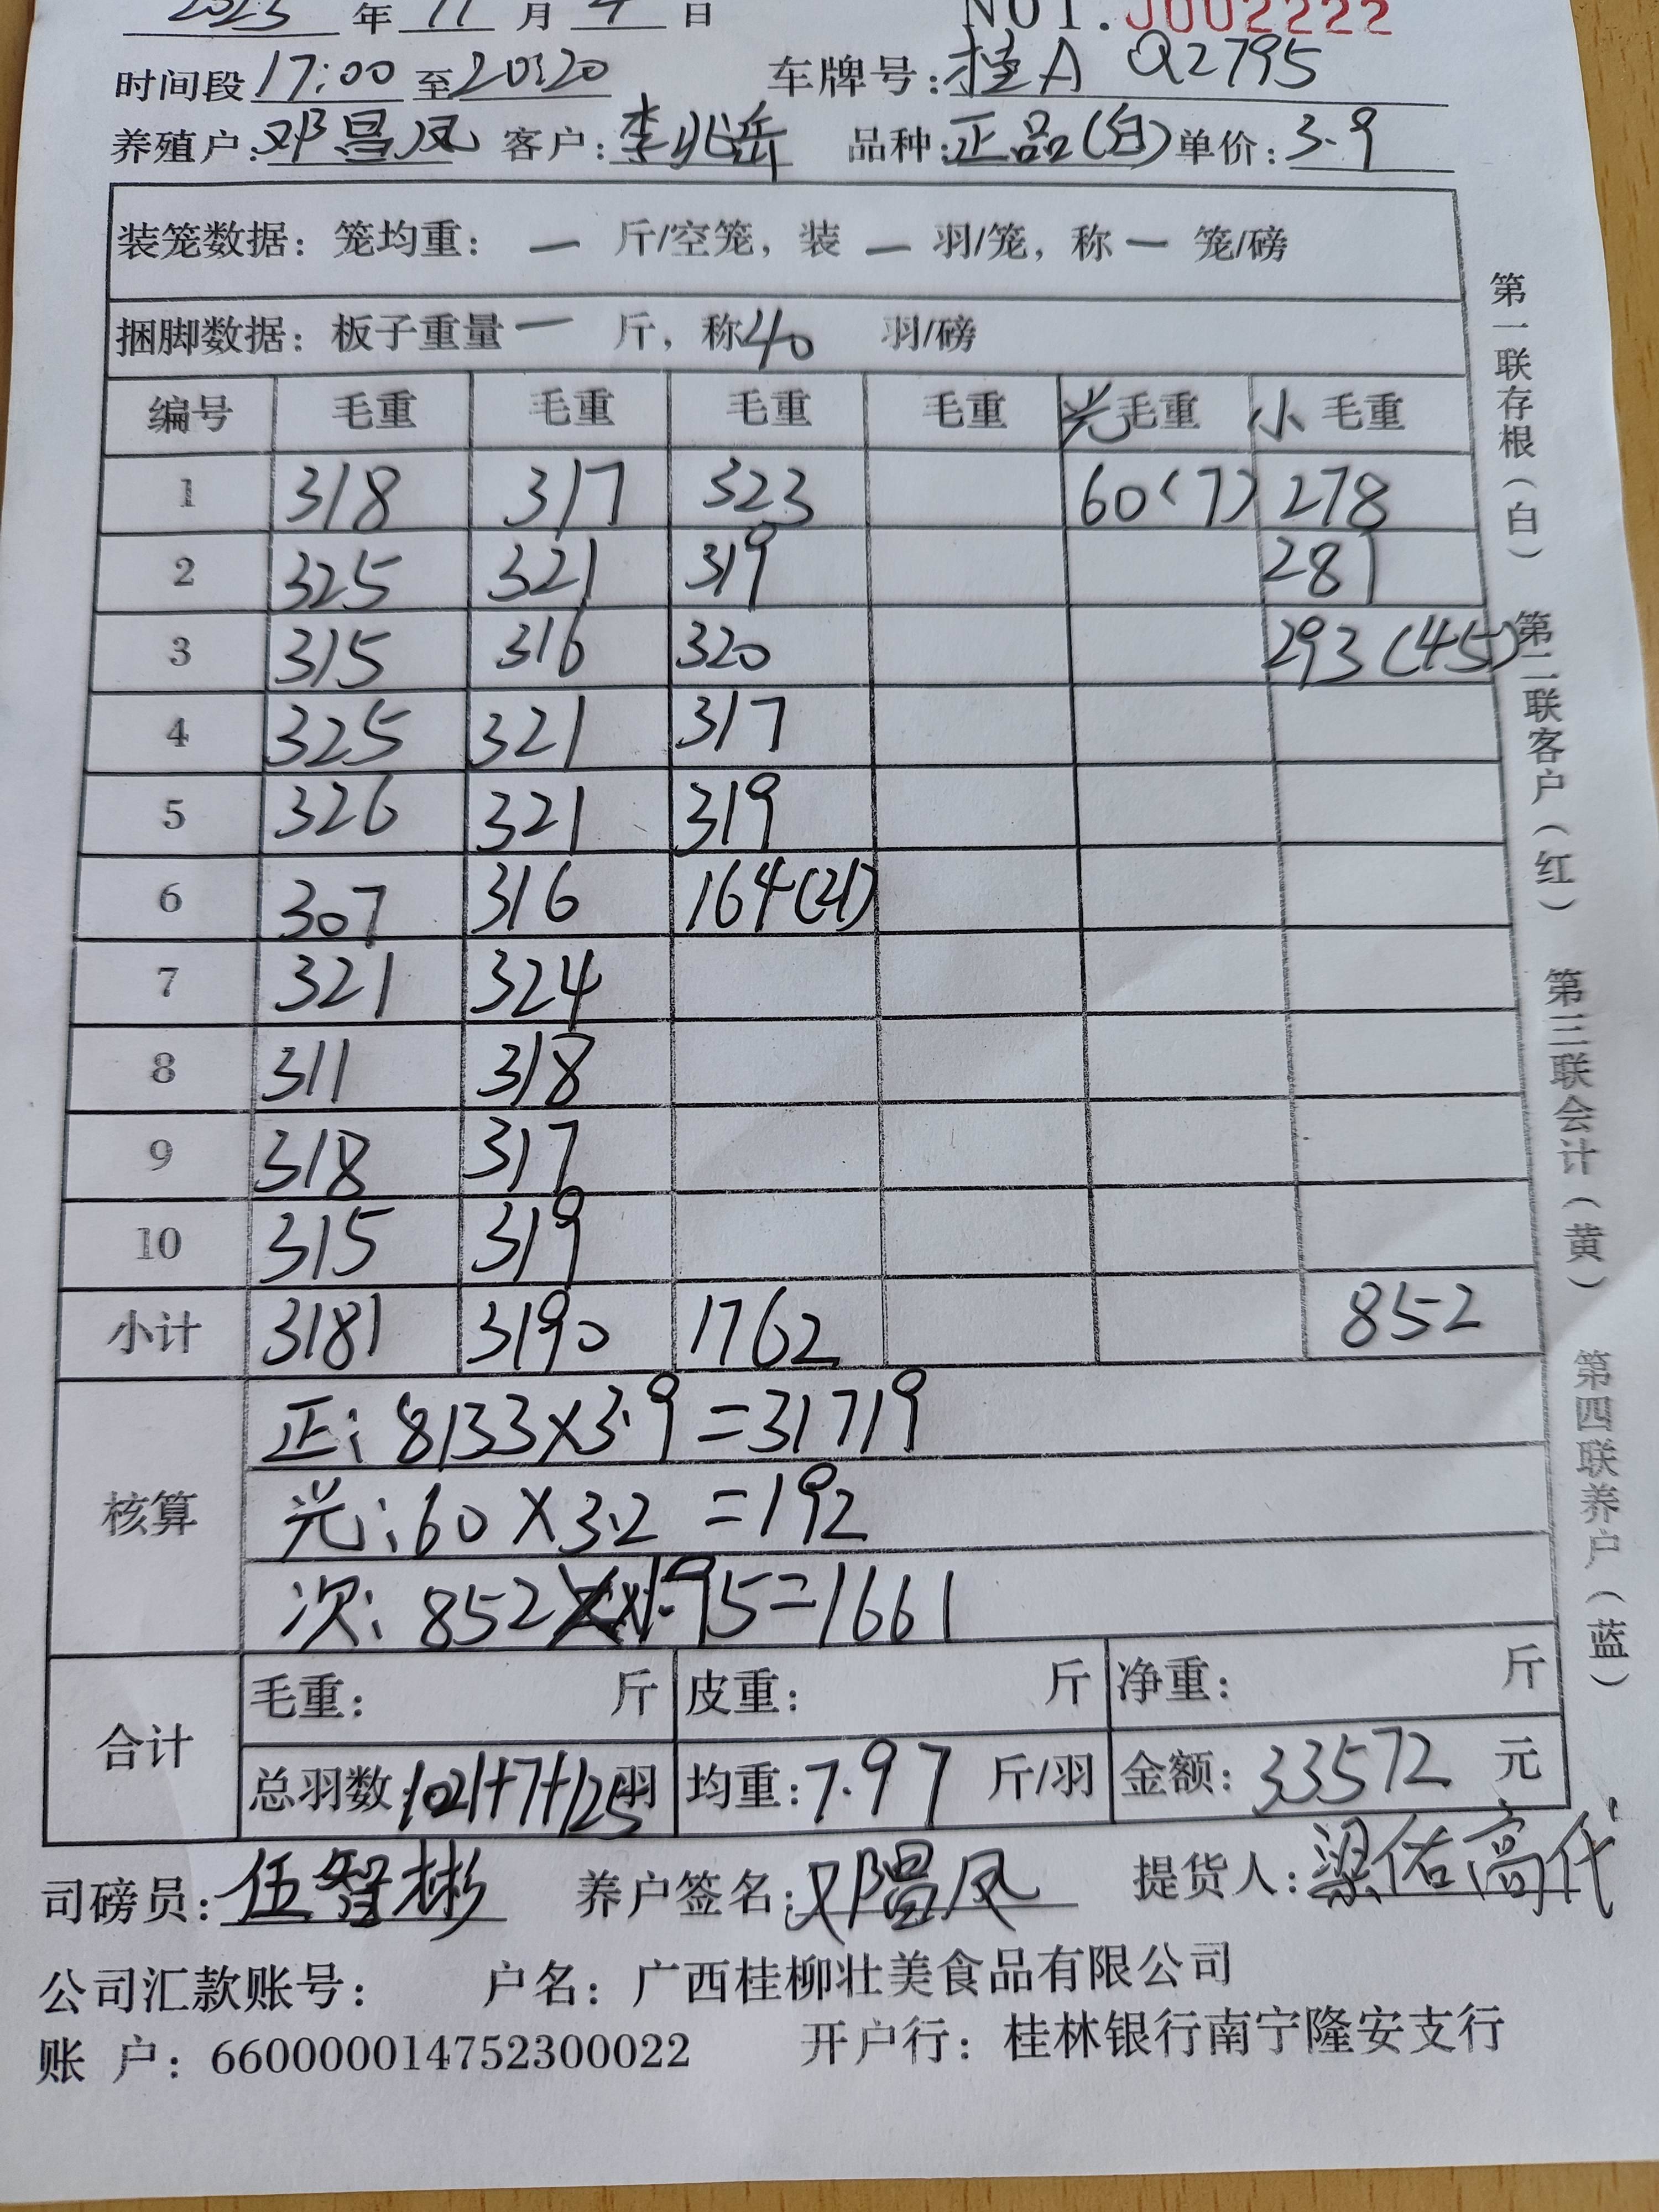 2023年11月4日 NO1.J002222
时间段17:00至20:20 车牌号:桂A Q2795
养殖户:邓昌凤 客户:李兆岳 品种:正品(白)单价:3.9
装笼数据：笼均重：一 斤/空笼，装 一 羽/笼，称 一 笼/磅
捆脚数据：板子重量 一 斤，称40 羽/磅
编号 毛重 毛重 毛重 毛重 光毛重 小毛重
1 318 317 323 60(7) 278
2 325 321 319 281
3 315 316 320 293(45)
4 325 321 317
5 326 321 319
6 307 316 164(21)
7 321 324
8 311 318
9 318 317
10 315 319
小计 3181 3190 1762 852
核算
正: 8133×3.9=31719
光:60×3.2=192
次: 852×1.95=1661
合计
毛重: 斤 皮重: 斤 净重: 斤
总羽数:1021+7+125羽 均重:7.97斤/羽 金额:33572元
司磅员:伍智彬 养户签名:邓昌凤 提货人:梁佑高代
公司汇款账号： 户名：广西桂柳壮美食品有限公司
账 户：660000014752300022 开户行：桂林银行南宁隆安支行
第一联存根（白） 第二联客户（红） 第三联会计（黄） 第四联养户（蓝）